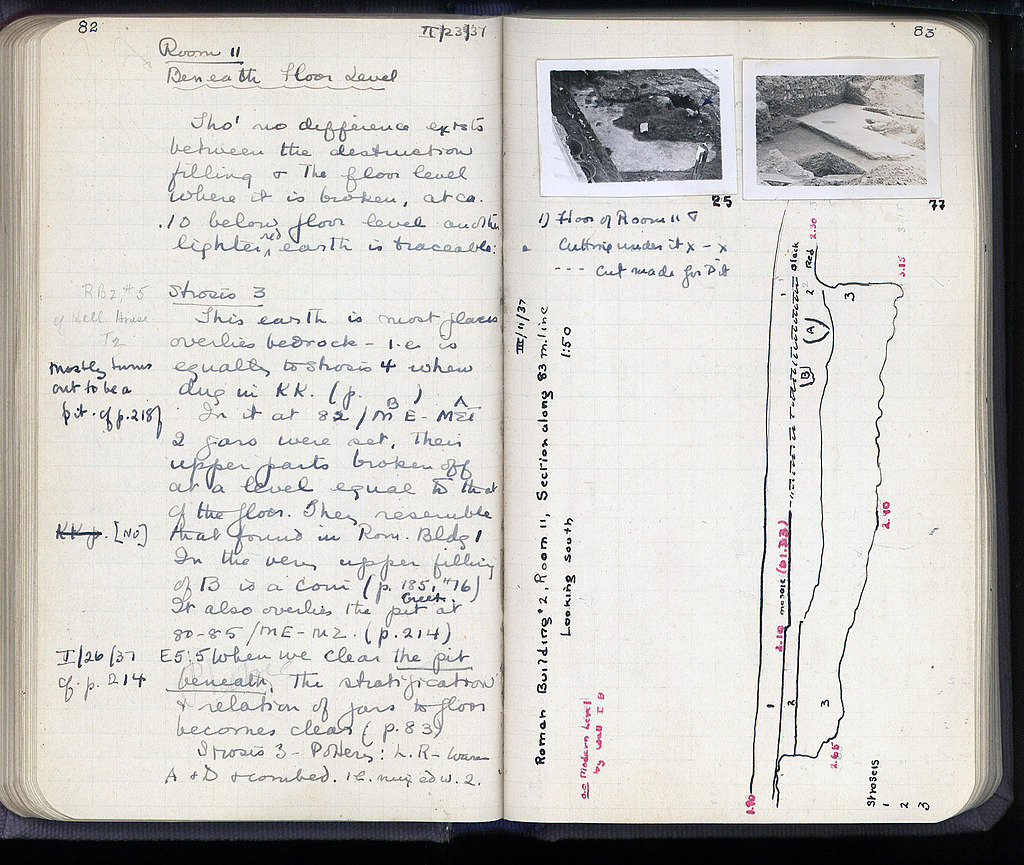 82
II/23/37
Room 11
Beneath Floor Level
Tho' no difference exists
between the destruction
filling & the floor level
where it is broken, at ca.
.10 below floor level another
lighter, red earth is traceable:
RB2, #5
Strosis 3
This earth is most places
T2
overlies bedrock - i.e. is
mostly turns
out to be a
pit. cf p. 218f
equally to strosis 4 when
dug in KK. (p. )
B A
In it at 82/ME-
2 jars were set, their
upper parts broken off
at a level equal to that
of the floor. They resemble
KK p. [NO]
that found in Rom. Bldg 1
In the very upper filling
of B is a coin (p. 185, #16)
Greek
It also overlies the pit at
80-85/ME-MZ. (p. 214)
I/26/37
cf. p. 214
E5:5 When we clear the pit
beneath, the stratification
& relation of jars to floor
becomes clear (p. 83)
Strosis 3 - Pottery: L.R-ware
A & D & combed.
83
25
77
1) Floor of Room 11
Cutting under it x - x
--- Cut made for Pit
III/11/37
Roman Building #2, Room 11, Section along 83 m. line
1:50
Looking south
a = Modern level
by wall I B
1.80
2.10 mosaic (61.33)
2.30
3.15
2.80
2.65
Black
Red
1
2
3
(A)
(B)
1
2
3
Stroseis
1
2
3